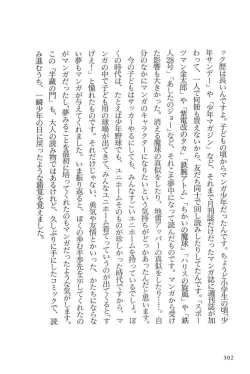 ック歴は長いんですよ。子どもの頃からマンガ少年だったんです。ちょうどぼくが小学生の頃、『少
年サンデー』や『少年マガジン』など、それまで月刊誌だけだったマンガ誌に週刊誌が加
わって、一人で何冊も買えないから、友だち同士で回し読みしたりしてたんです。『スポー
ツマン金太郎』や『紫電改のタカ』、『鉄腕アトム』『ちかいの魔球』『ハリスの旋風』や『鉄
人28号』、『あしたのジョー』など、それこそ夢中になって読んだものです。マンガから受け
た影響も大きかった。消える魔球の真似をしたり、地雷アッパーの真似をしたり……。自
分のなかにマンガのキャラクターになりたいという気持ちがどっかあったんだと思います。
今の子どもはサッカーやるにしても、みんなすごいユニホームを持っているでしょ。ぼ
くの時代は、たとえば少年野球でも、ユニホームそのものが珍しかった時代ですから、マ
ンガの中で子ども用の球場が出てきて、みんなユニホーム着てっていうのが出てくると、す
げえ！　と憧れたものです。それだけじゃない、勇気や友情とかいった、なんだかんだとい
い夢もマンガが与えてくれました。いま振り返ると、ぼくの歩む半歩先を示してくれたの
がマンガだったし、夢みることを最初に培ってくれたのもマンガだったように思います。
この『半蔵の門』も、大人の読み物ではあるけれど、久しぶりに手にしたコミックで、読
み進むうち、一瞬少年の日に戻ったような錯覚を覚えました。
302